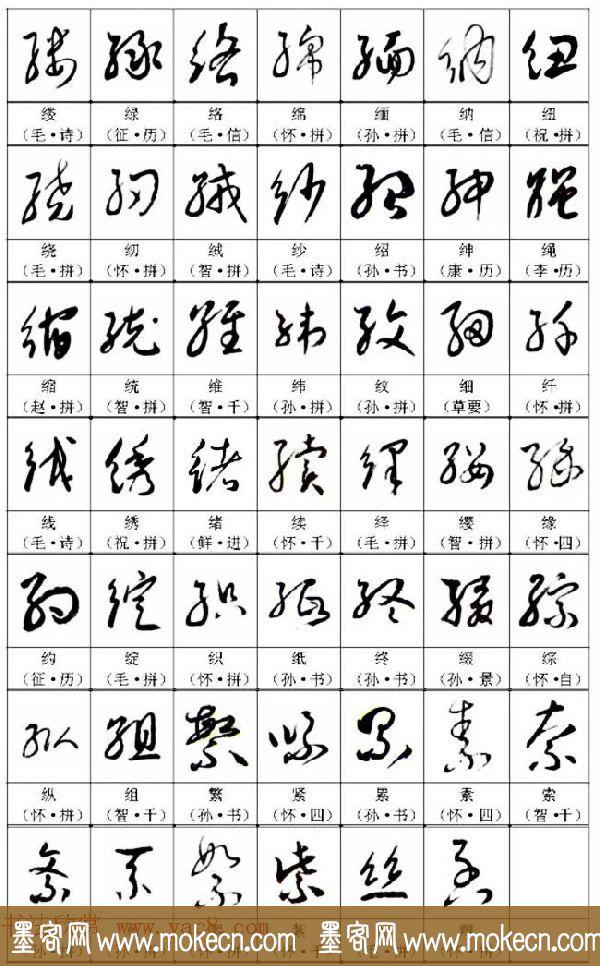 缕 绿 络 绵 缅 纳 纽
(毛·诗) (征·历) (毛·信) (怀·拼) (孙·拼) (毛·信) (祝·拼)
绕 纫 绒 纱 绍 绅 绳
(毛·拼) (怀·拼) (智·拼) (毛·诗) (孙·书) (康·历) (李·历)
缩 统 维 纬 纹 细 纤
(赵·拼) (智·拼) (智·千) (孙·拼) (孙·拼) (草要) (怀·拼)
线 绣 绪 续 绎 缨 缘
(毛·诗) (祝·拼) (鲜·进) (怀·千) (毛·拼) (智·拼) (怀·四)
约 绽 织 纸 终 缀 综
(征·历) (毛·拼) (怀·拼) (孙·书) (孙·书) (孙·景) (怀·自)
纵 组 繁 紧 累 素 索
(怀·拼) (智·千) (孙·书) (怀·四) (孙·书) (怀·四) (智·千)
墨客网 www.mokecn.com 墨客网 www.mokecn.com